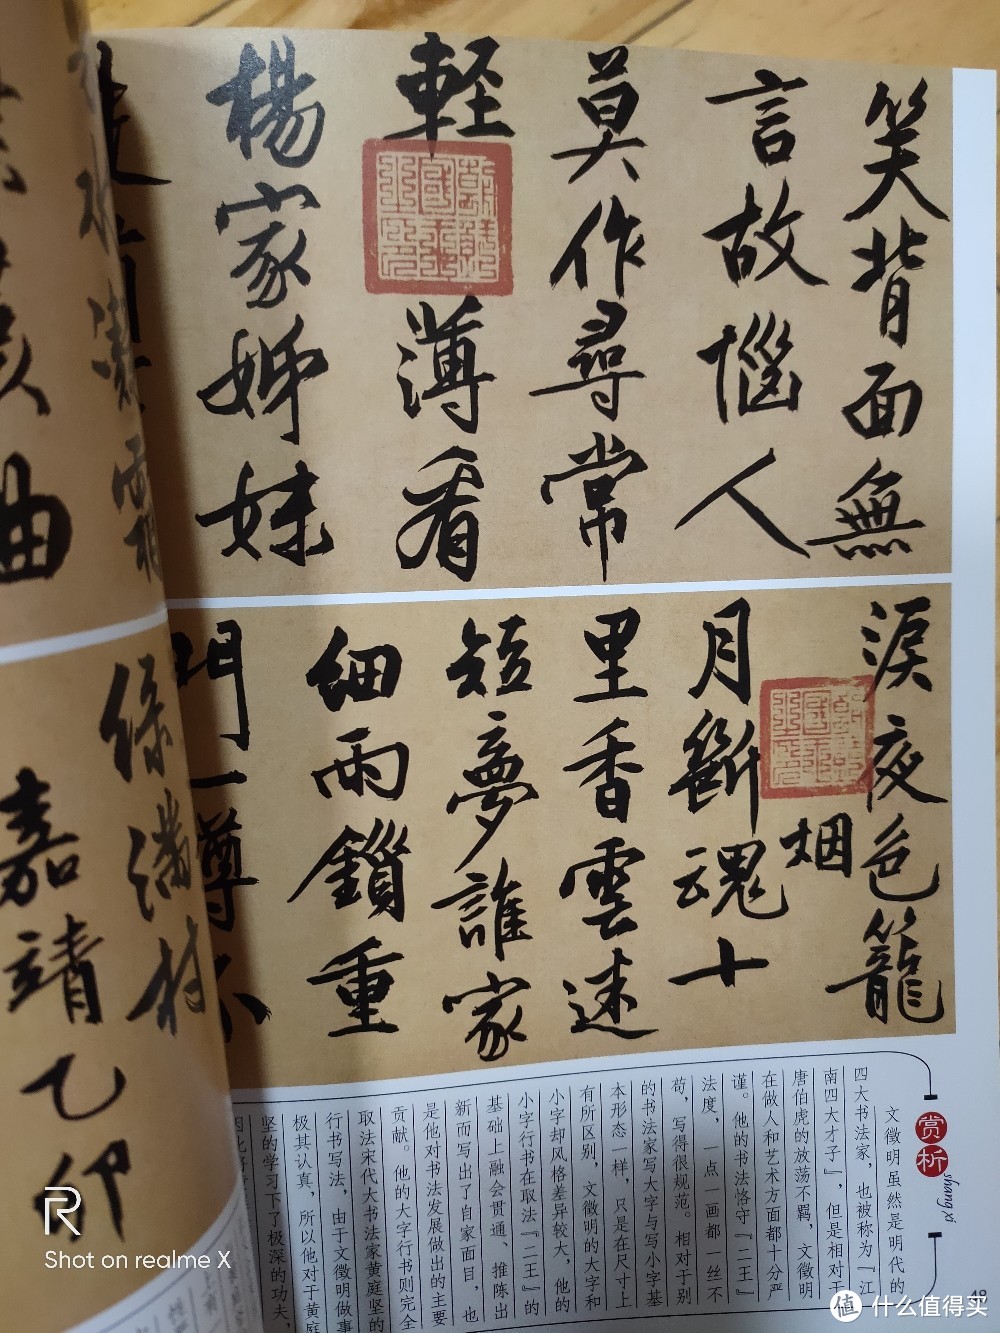 笑背面無
言故惱人
莫作尋常
軽薄看
楊家姊妹
淚夜色籠
烟
月斷魂十
里香雲迷
短夢誰家
細雨鎖重
門一尊
緑满村
曲
嘉靖乙卯
赏析
shang xi
文徵明虽然是明代的
四大书法家，也被称为『江
南四大才子』，但是相对于
唐伯虎的放荡不羁，文徵明
在做人和艺术方面都十分严
谨。他的书法恪守『二王』
法度，一点一画都一丝不
苟，写得很规范。相对于别
的书法家写大字与写小字基
本形态一样，只是在尺寸上
有所区别，文徵明的大字和
小字却风格差异较大，他的
小字行书在取法『二王』的
基础上融会贯通、推陈出
新而写出了自家面目，也
是他对书法发展做出的主要
贡献。他的大字行书则完全
取法宋代大书法家黄庭坚的
行书写法，由于文徵明做事
极其认真，所以他对于黄庭
坚的学习下了极深的功夫，
因此
49
R
Shot on realme X
值 什么值得买